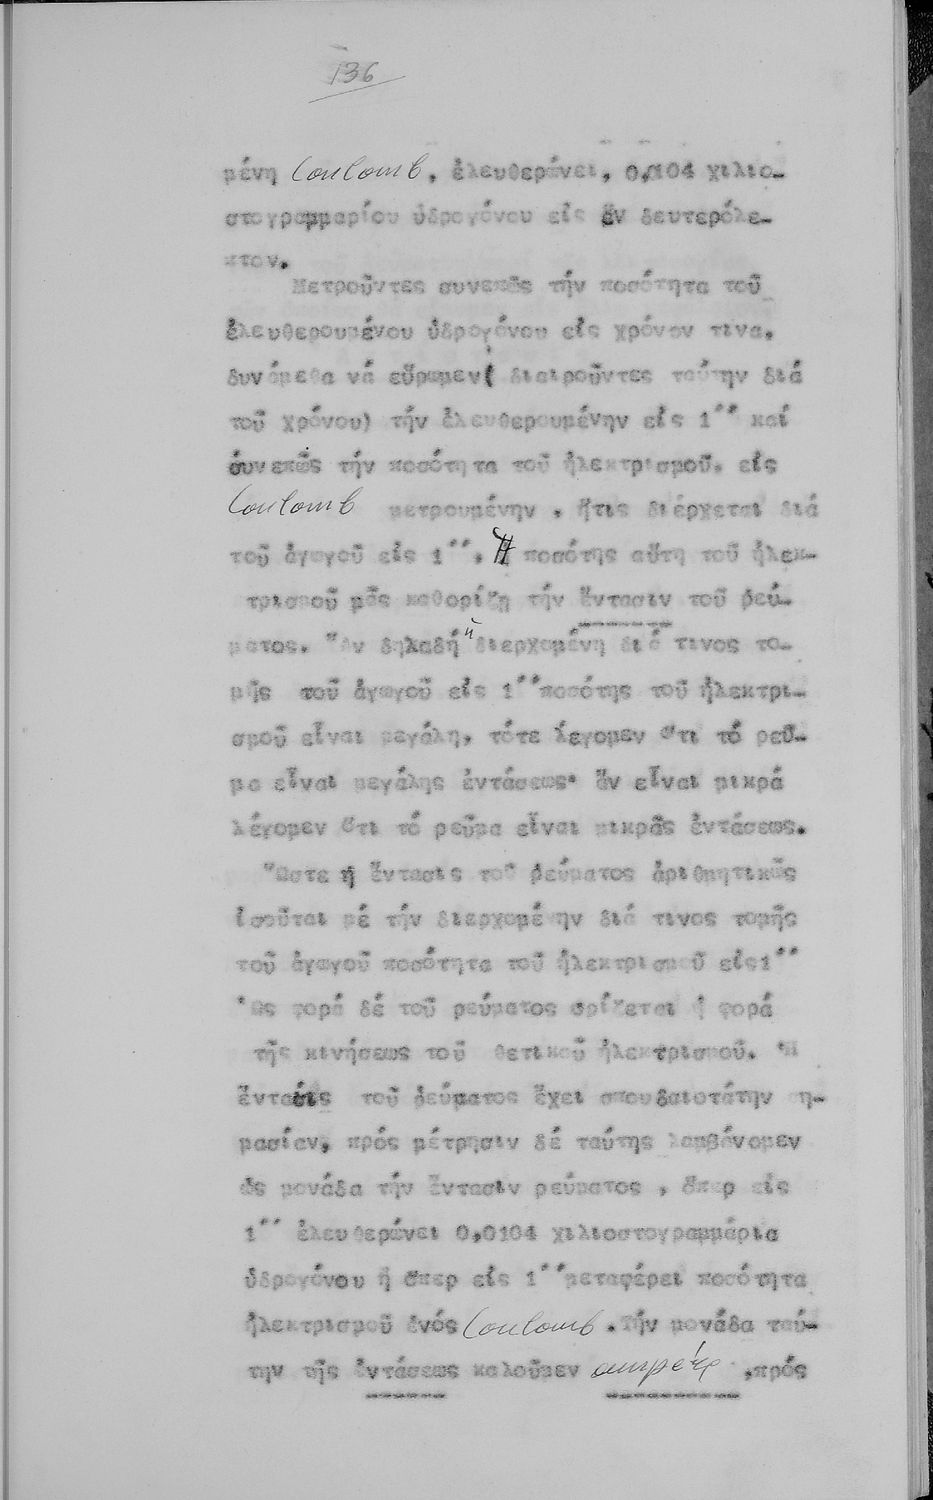 136
μένη Coulomb, ἐλευθερώνει, 0,0104 χιλιο-
στογραμμαρίου ὑδρογόνου εἰς ἕν δευτερόλε-
πτον.
Μετροῦντες συνεπῶς τήν ποσότητα τοῦ
ἐλευθερουμένου ὑδρογόνου εἰς χρόνον τινα,
δυνάμεθα νά εὕρωμεν( διαιροῦντες ταύτην διά
τοῦ χρόνου) τήν ἐλευθερουμένην εἰς 1΄΄ καί
συνεπῶς τήν ποσότητα τοῦ ἠλεκτρισμοῦ, εἰς
Coulomb μετρουμένην , ἥτις διέρχεται διά
τοῦ ἀγωγοῦ εἰς 1΄΄. Ἡ ποσότης αὕτη τοῦ ἠλεκ-
τρισμοῦ μᾶς καθορίζῃ τήν ἔντασιν τοῦ ρεύ-
ματος. Ἄν δηλαδή ἡ διερχομένη διά τινος το-
μῆς τοῦ ἀγωγοῦ εἰς 1΄΄ποσότης τοῦ ἠλεκτρι-
σμοῦ εἶναι μεγάλη, τότε λέγομεν ὅτι τό ρεῦ-
μα εἶναι μεγάλης ἐντάσεως· ἄν εἶναι μικρά
λέγομεν ὅτι τό ρεῦμα εἶναι μικρᾶς ἐντάσεως.
Ὥστε ἡ ἔντασις τοῦ ρεύματος ἀριθμητικῶς
ἰσοῦται μέ τήν διερχομένην διά τινος τομῆς
τοῦ ἀγωγοῦ ποσότητα τοῦ ἠλεκτρισμοῦ εἰς1΄΄
Ὡς φορά δέ τοῦ ρεύματος ὁρίζεται ἡ φορά
τῆς κινήσεως τοῦ θετικοῦ ἠλεκτρισμοῦ. Ἡ
ἔντασις τοῦ ρεύματος ἔχει σπουδαιοτάτην ση-
μασίαν, πρός μέτρησιν δέ ταύτης λαμβάνομεν
ὡς μονάδα τήν ἔντασιν ρεύματος , ὅπερ εἰς
1΄΄ ἐλευθερώνει 0,0104 χιλιοστογραμμάρια
ὑδρογόνου ἤ ὅπερ εἰς 1΄΄μεταφέρει ποσότητα
ἠλεκτρισμοῦ ἑνός Coulomb. Τήν μονάδα ταύ-
την τῆς ἐντάσεως καλοῦμεν ampère ,πρός